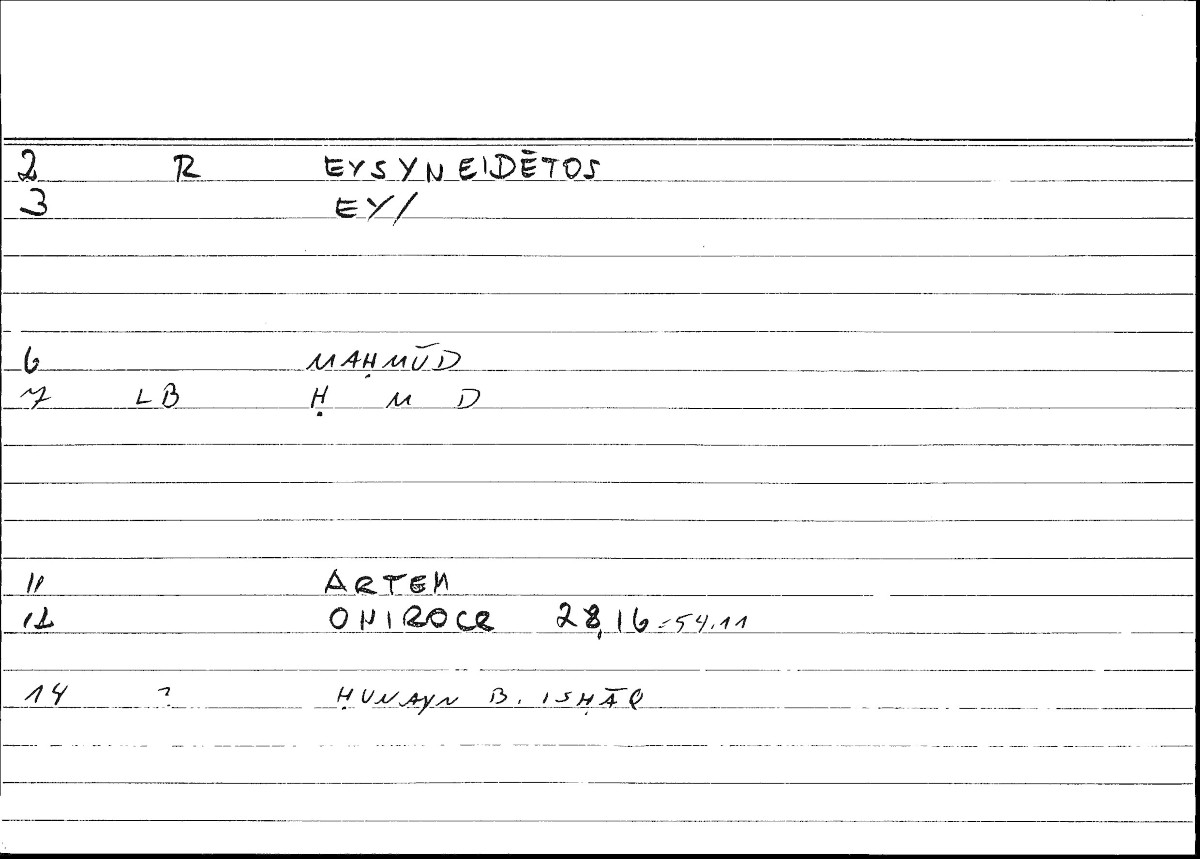 2 R EYSYNEIDĒTOS
3 EY/
6 MAḤMŪD
7 LB Ḥ M D
11 ARTEM
12 ONIROCR 28,16=54.11
14 ? ḤUNAYN B. ISḤĀQ